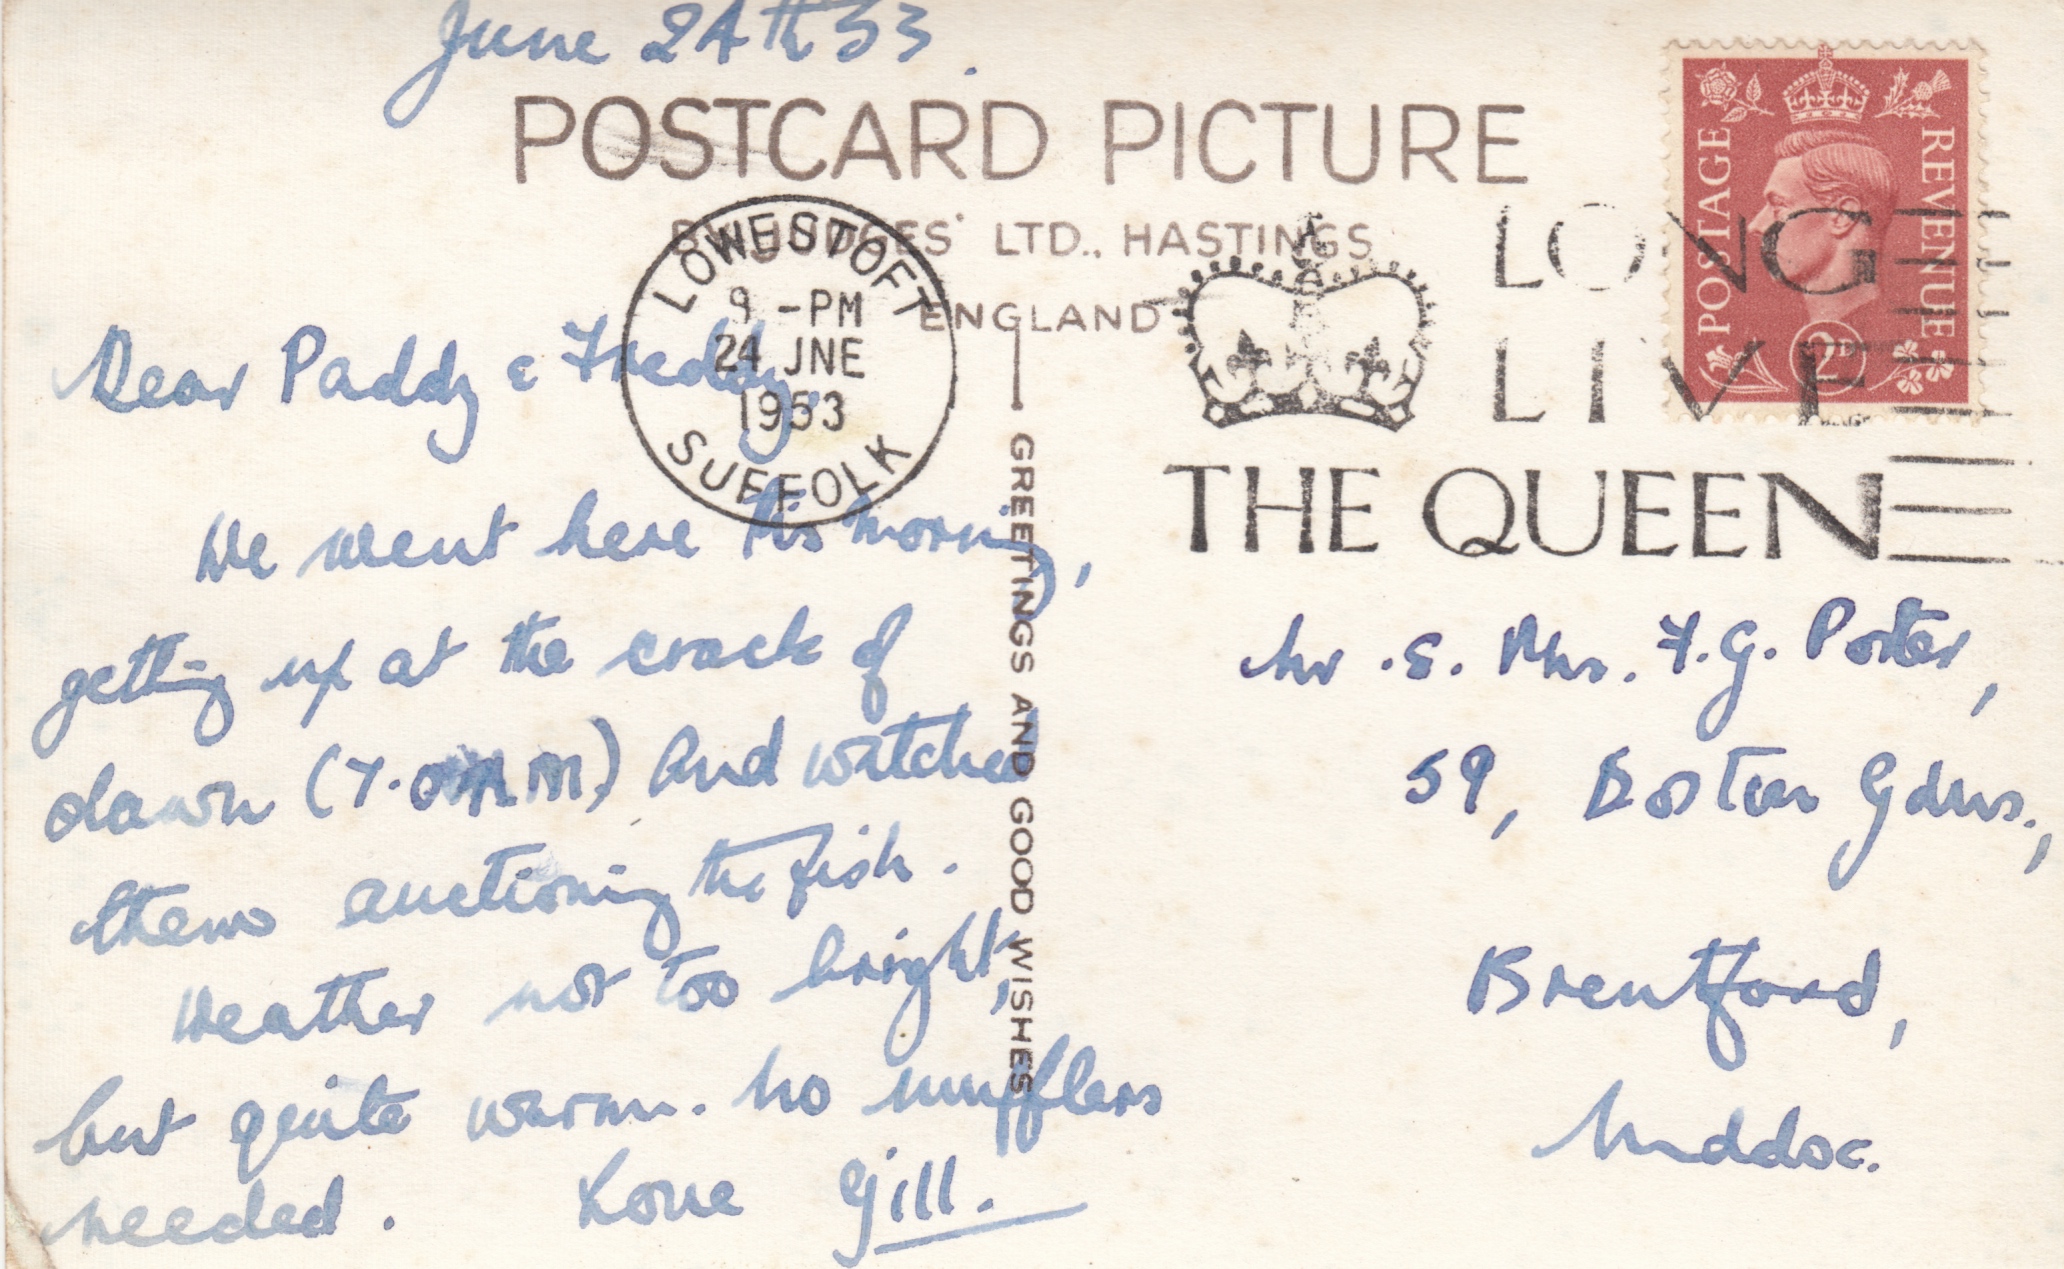 June 24th 53.
POSTCARD PICTURE
BY JUDGES' LTD., HASTINGS
ENGLAND
GREETINGS AND GOOD WISHES
LOWESTOFT
9 -PM
24 JNE
1953
SUFFOLK
LONG
LIVE
THE QUEEN
POSTAGE
REVENUE
2D
Dear Paddy & Freddy,
We went here this morning,
getting up at the crack of
dawn (7.0 A.M.) and watched
them auctioning the fish.
Weather not too bright,
but quite warm. No mufflers
needed. Love Gill.
Mr. & Mrs. F.G. Porter,
59, Boston Gdns.,
Brentford,
Middx.